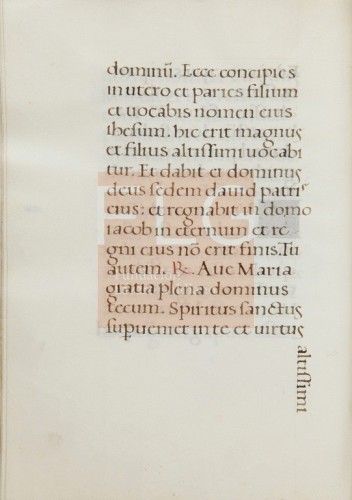 dominū. Ecce concipies
in utero et paries filium
et uocabis nomen eius
ihesum. hic erit magnus
et filius altissimi uocabi
tur. Et dabit ei dominus
deus sedem dauid patris
eius: et regnabit in domo
iacob in eternum et re
gni eius nō erit finis. Tu
autem. ℟. Aue Maria
gratia plena dominus
tecum. Spiritus sanctus
superueniet in te et uirtus
altissimi